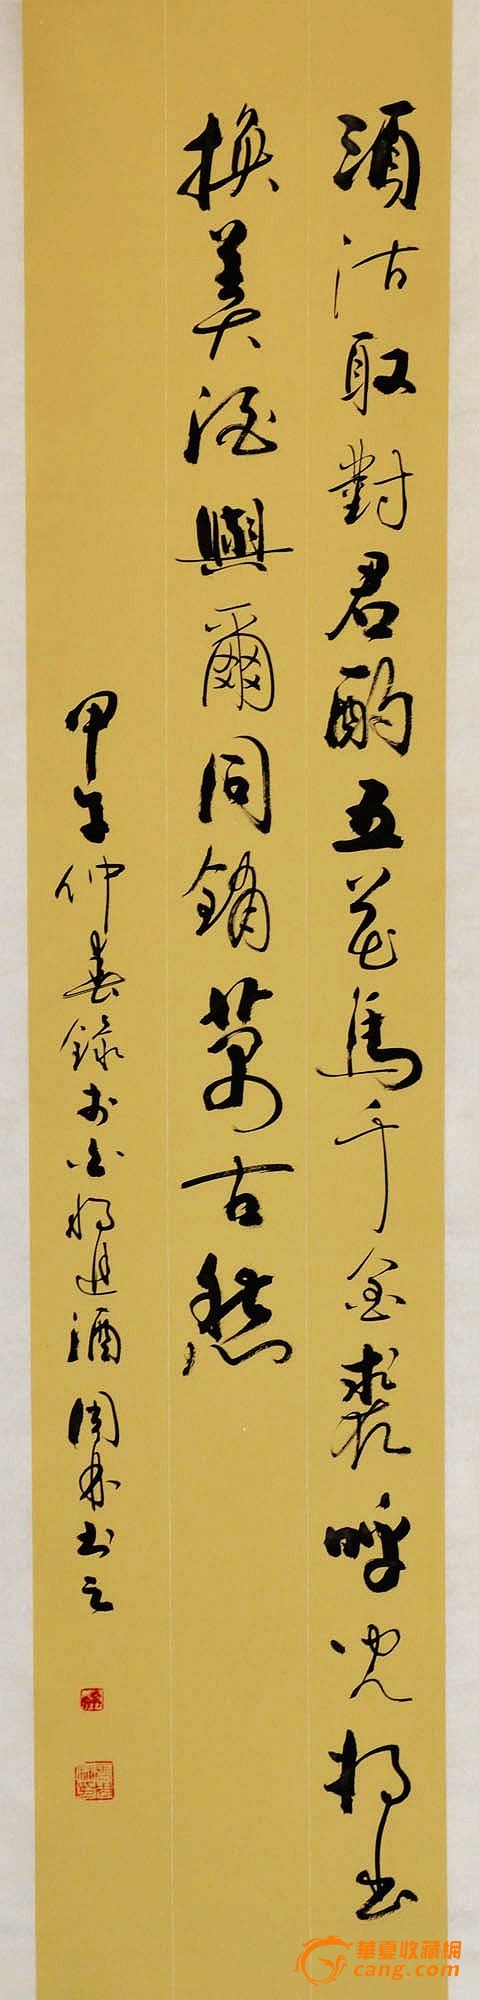 酒沽取對君酌五花馬千金裘呼兒将出
換美酒與爾同銷萬古愁
甲午仲春錄李白将進酒周书之
華夏收藏網
cang.com